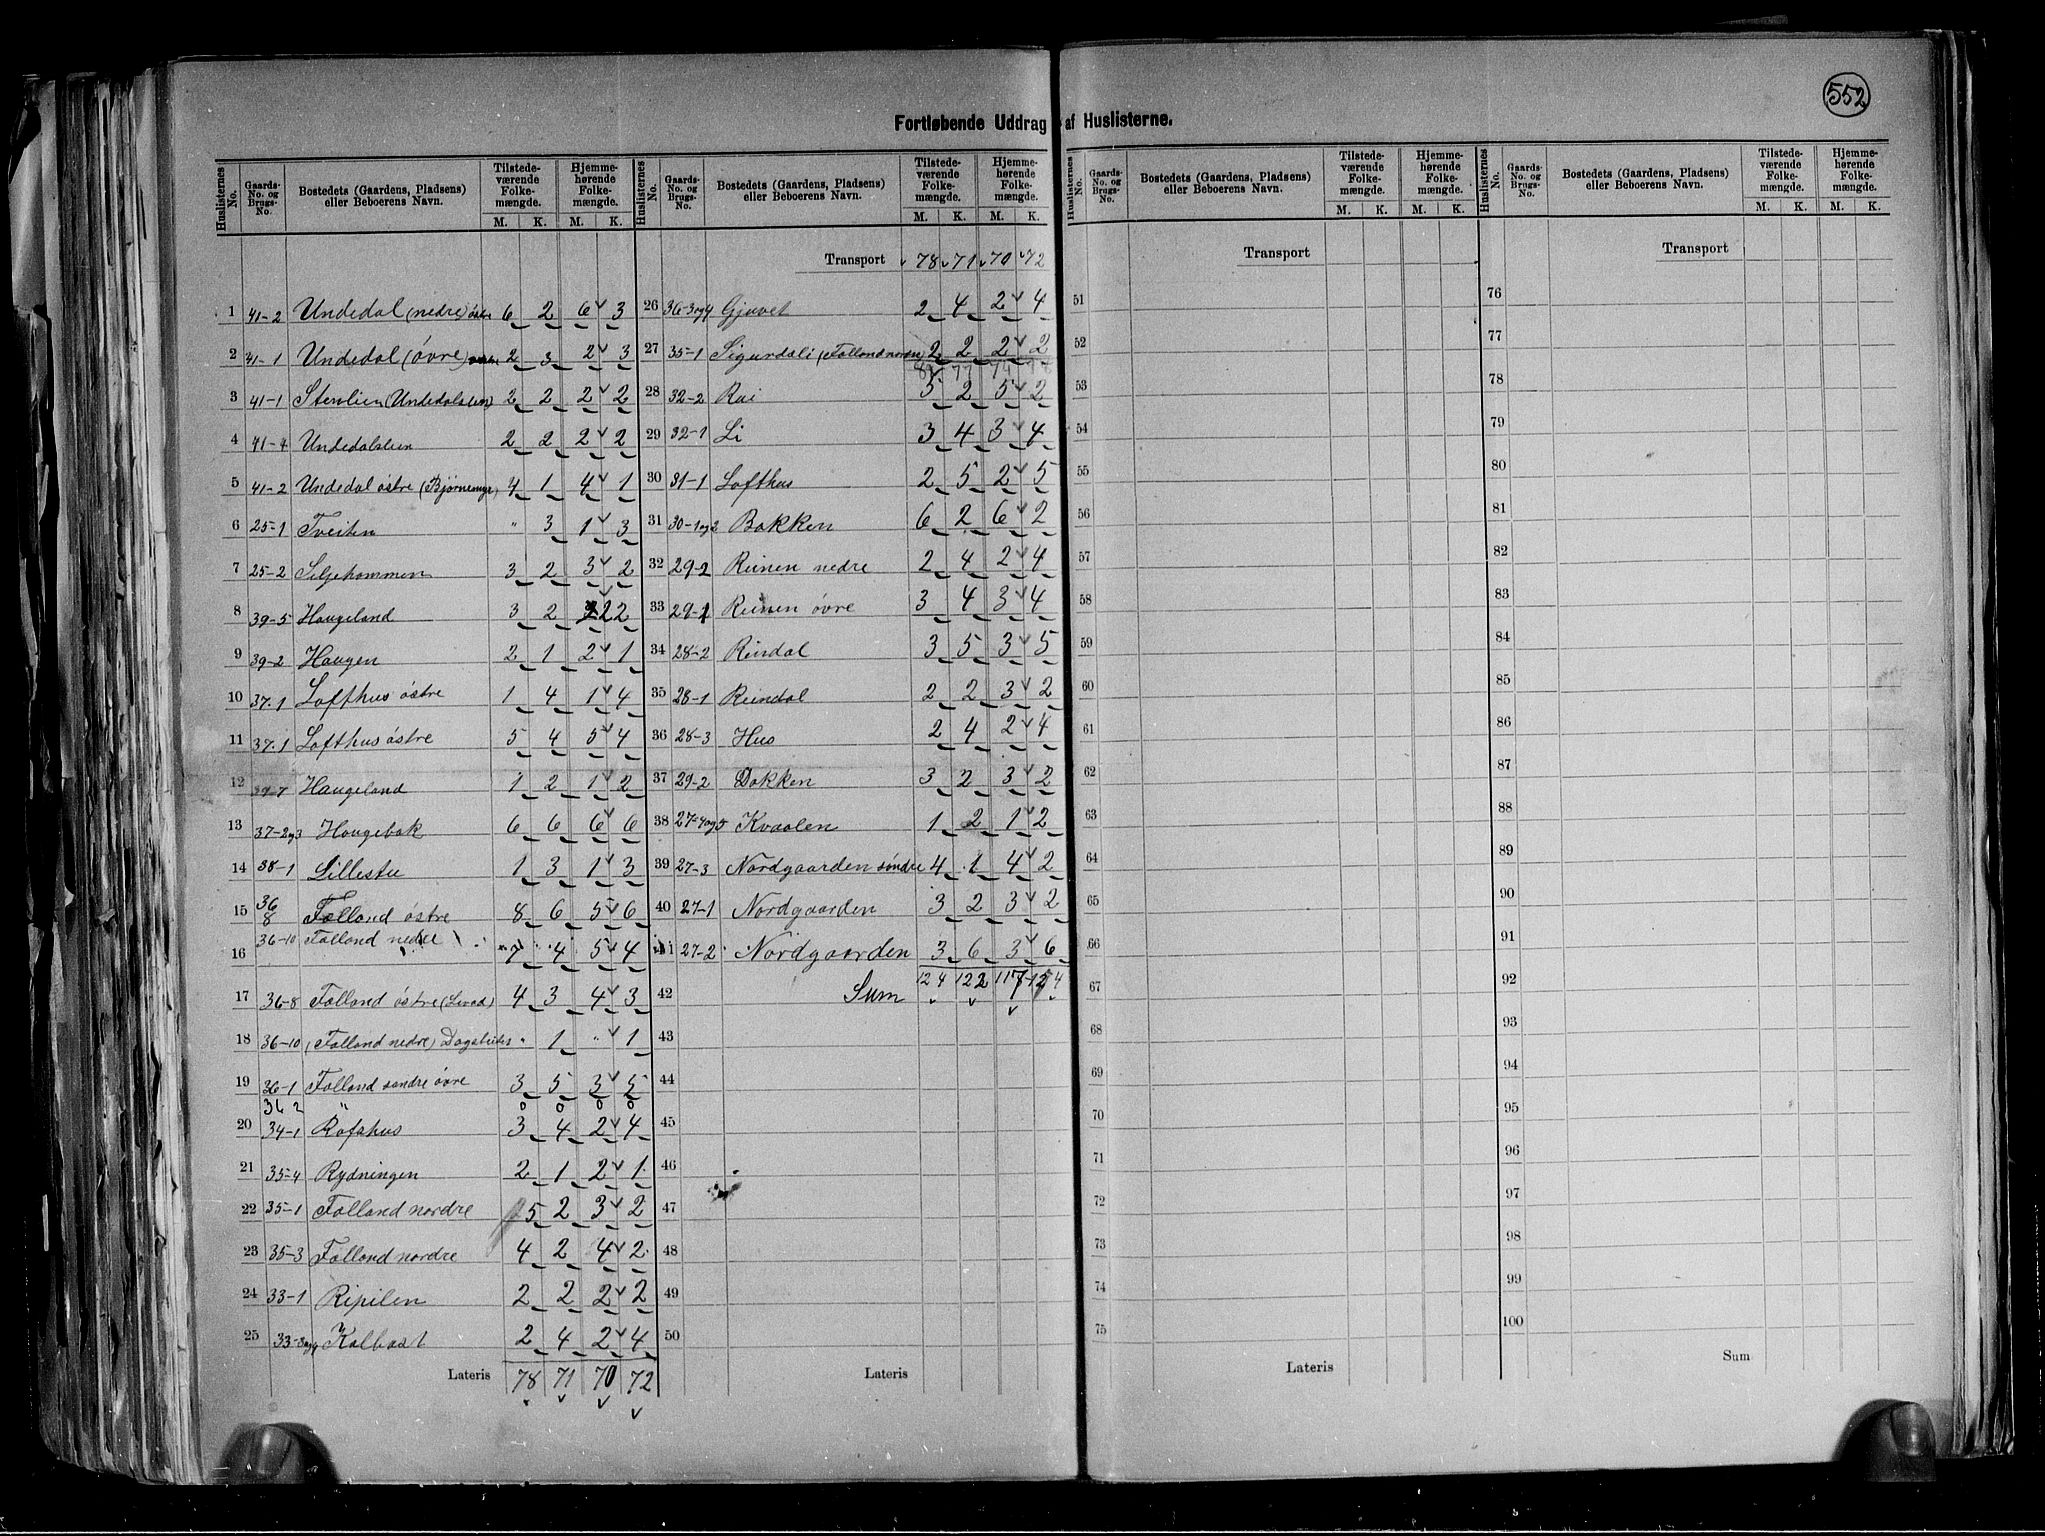 552
Fortløbende Uddrag af Huslisterne.
Huslisternes No. Gaards-No. og Brugs-No. Bostedets (Gaardens, Pladsens) eller Beboerens Navn. Tilstedeværende Folkemængde. M. K. Hjemmehørende Folkemængde. M. K.
1 41-2 Undedal (nedre) østre 6 2 6 3
2 41-1 Undedal (øvre) 2 3 2 3
3 41-1 Stenlien (Undedalslien) 2 2 2 2
4 41-4 Undedalslien 2 2 2 2
5 41-2 Undedal østre (Bjørnemyr) 4 1 4 1
6 25-1 Tveiten " 3 1 3
7 25-2 Siljehommen 3 2 3 2
8 39-5 Haugeland 3 2 2 2
9 39-2 Haugen 2 1 2 1
10 37.1 Lofthus østre 1 4 1 4
11 37.1 Lofthus østre 5 4 5 4
12 Haugeland 1 2 1 2
13 37-2og3 Haugebak 6 6 6 6
14 38-1 Lillestu 1 3 1 3
15 36 8 Folland østre 8 6 5 6
16 36-10 Folland nedre 7 4 5 4
17 36-8 Folland østre (Lerad) 4 3 4 3
18 36-10 (Folland nedre) 1 " 1
19 36-1 Folland søndre øvre 3 5 3 5
36 2 " 0 0 0 0
20 34-1 Rofshus 3 4 2 4
21 35-4 Rydningen 2 1 2 1
22 35-1 Folland nordre 5 2 3 2
23 35-3 Folland nordre 4 2 4 2
24 33-1 Ripilen 2 2 2 2
25 Kalbast 2 4 2 4
Lateris 78 71 70 72
Huslisternes No. Gaards-No. og Brugs-No. Bostedets (Gaardens, Pladsens) eller Beboerens Navn. Tilstedeværende Folkemængde. M. K. Hjemmehørende Folkemængde. M. K.
Transport 78 71 70 72
26 36-3og4 Gjuvet 2 4 2 4
27 35-1 Sigurdali (Folland nordre) 2 2 2 2
28 32-2 Rui 5 2 5 2
29 32-1 Li 3 4 3 4
30 31-1 Lofthus 2 5 2 5
31 30-1og2 Bakken 6 2 6 2
32 29-2 Reinen nedre 2 4 2 4
33 29-1 Reinen øvre 3 4 3 4
34 28-2 Reindal 3 5 3 5
35 28-1 Reindal 2 2 3 2
36 28-3 Hus 2 4 2 4
37 29-2 Dokken 3 2 3 2
38 27-4og5 Kvaalen 1 2 1 2
39 27-3 Nordgaarden søndre 4 1 4 2
40 27-1 Nordgaarden 3 2 3 2
41 27-2 Nordgaarden 3 6 3 6
42 Sum 124 122 117
43
44
45
46
47
48
49
50
Lateris
Huslisternes No. Gaards-No. og Brugs-No. Bostedets (Gaardens, Pladsens) eller Beboerens Navn. Tilstedeværende Folkemængde. M. K. Hjemmehørende Folkemængde. M. K.
Transport
51
52
53
54
55
56
57
58
59
60
61
62
63
64
65
66
67
68
69
70
71
72
73
74
75
Lateris
Huslisternes No. Gaards-No. og Brugs-No. Bostedets (Gaardens, Pladsens) eller Beboerens Navn. Tilstedeværende Folkemængde. M. K. Hjemmehørende Folkemængde. M. K.
Transport
76
77
78
79
80
81
82
83
84
85
86
87
88
89
90
91
92
93
94
95
96
97
98
99
100
Sum